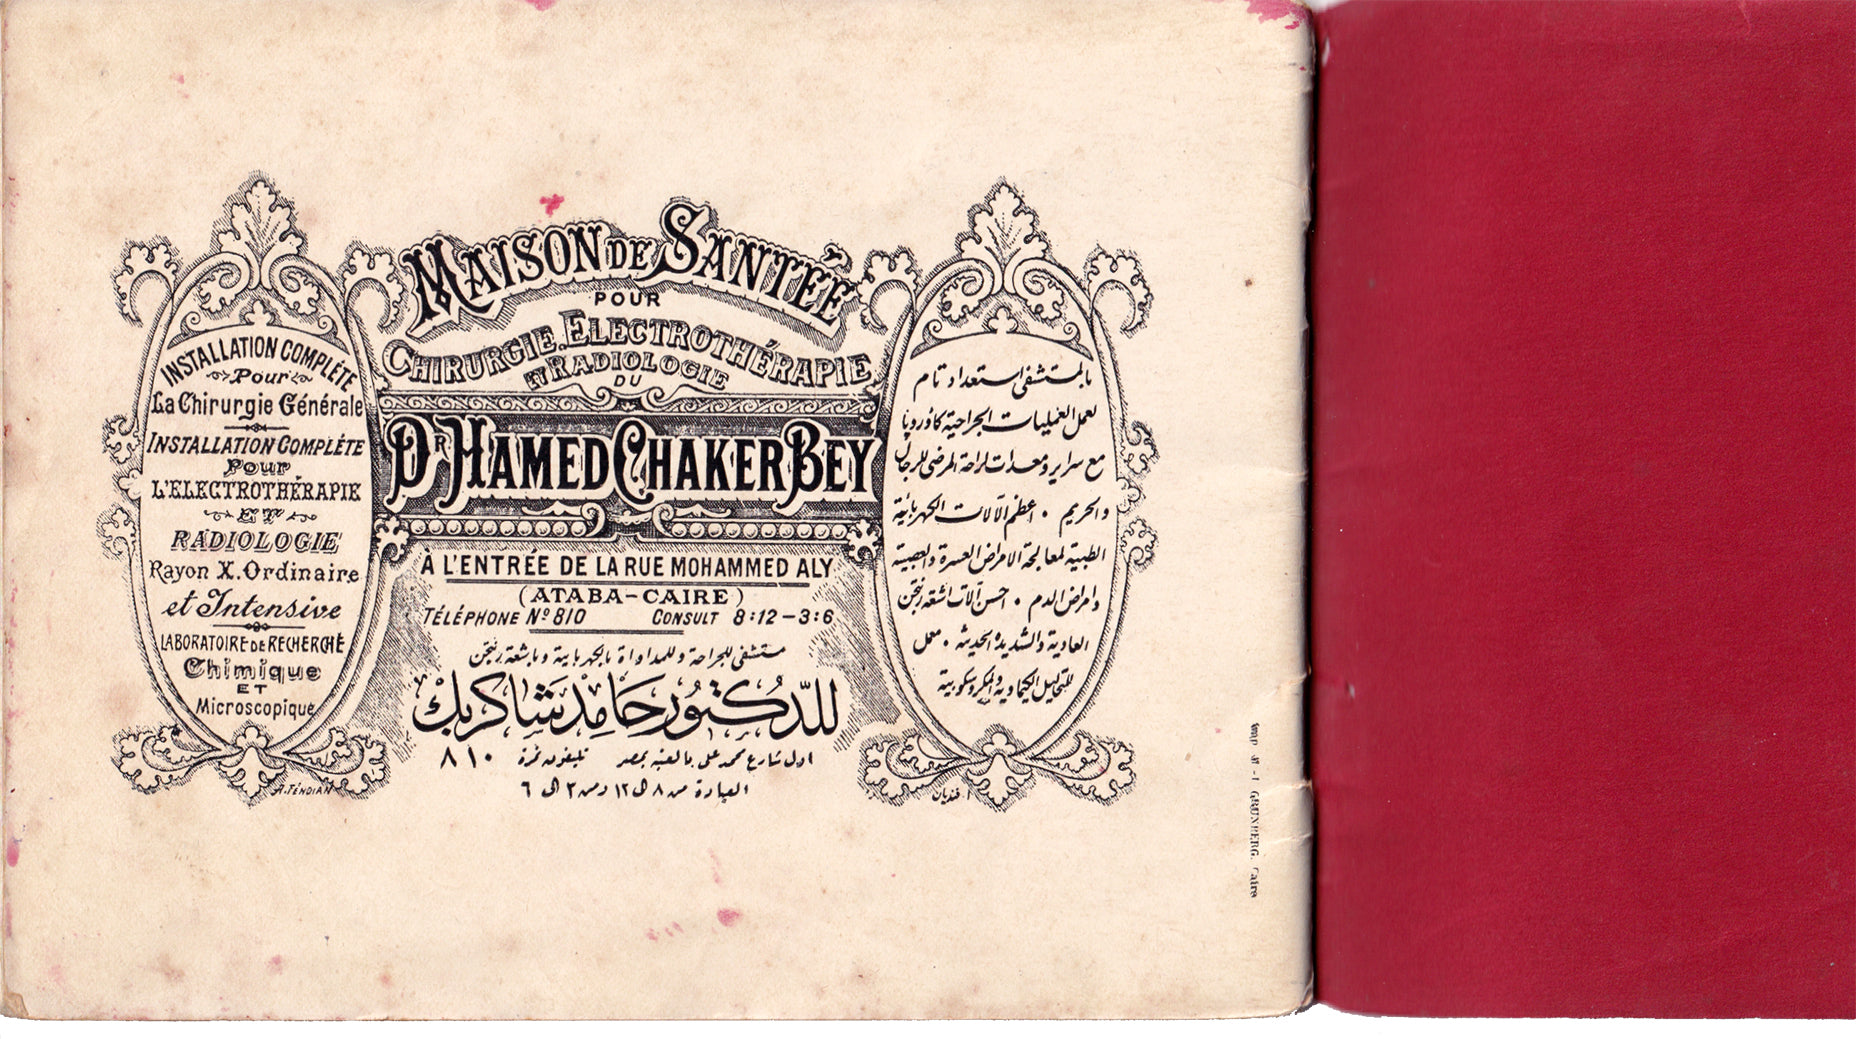 MAISON DE SANTÉE
POUR
CHIRURGIE, ELECTROTHÉRAPIE
ET RADIOLOGIE
DU
DR HAMED CHAKER BEY
À L'ENTRÉE DE LA RUE MOHAMMED ALY
(ATABA-CAIRE)
TÉLÉPHONE No 810 CONSULT 8:12-3:6
مستشفى للجراحة وللمداواة بالكهربائية وباشعة رنتجن
للدّكتور حَامِد شَاكر بك
اول شارع محمد على بالعتبه بمصر تليفون نمرة ٨١٠
العيادة من ٨ الى ١٢ ومن ٣ الى ٦
INSTALLATION COMPLÈTE
Pour
La Chirurgie Générale
INSTALLATION COMPLÈTE
Pour
L'ELECTROTHÉRAPIE
ET
RADIOLOGIE
Rayon X. Ordinaire
et Intensive
LABORATOIRE DE RECHERCHE
Chimique
ET
Microscopique
A. TENDIAN
بالمستشفى استعداد تام
لعمل العمليات الجراحية كاوروپا
مع سراير ومعدات لراحة المرضى للرجال
والحريم . اعظم الآلات الكهربائية
الطبية لمعالجة الامراض العسرة والعصبية
وامراض الدم . احسن آلات اشعة رنتجن
العادية والشديدة الحديثة . معمل
للتحاليل الكيماوية والميكروسكوبية
GRUNBERG. Caire